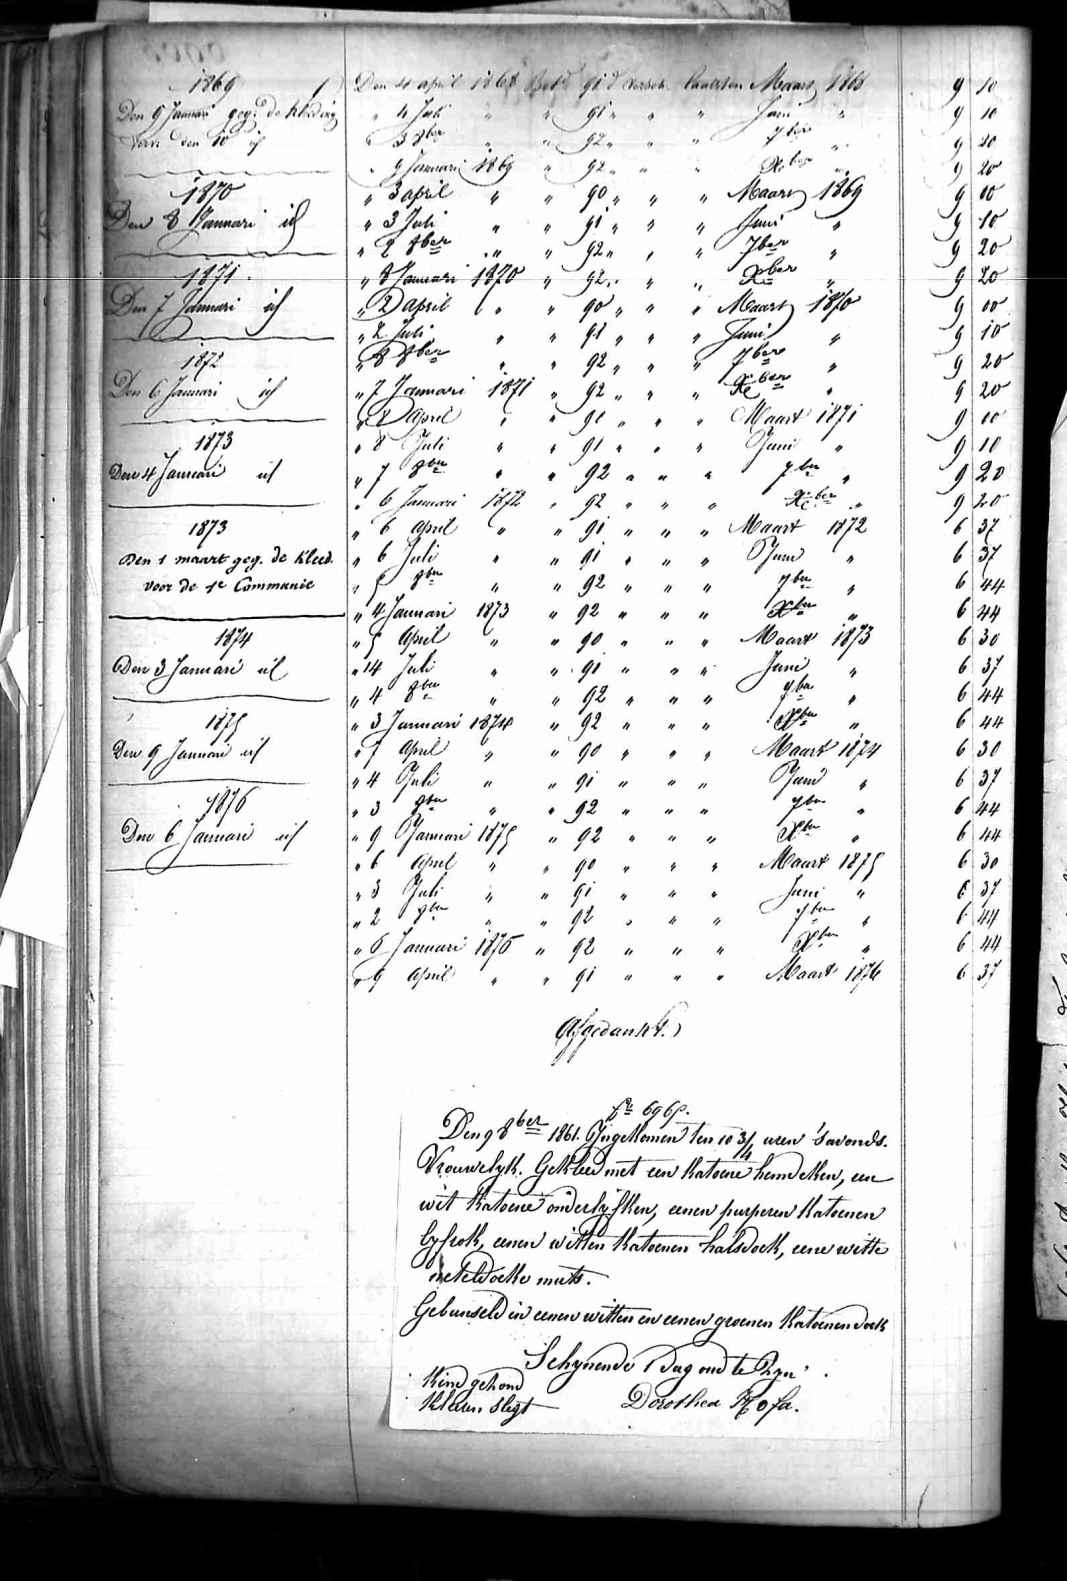 1869
Den 9 Januari geg. de kleding
voor den 10 id
1870
Den 8 Januari id
1871
Den 7 Januari id
1872
Den 6 Januari id
1873
Den 4 Januari id
1873
Den 1 maart geg. de kleed.
voor de 1e Communie
1874
Den 3 Januari id
1875
Den 9 Januari id
1876
Den 6 Januari id
Den 4 april 1868 Betd 91 d versch. laatsten Maart 1868 9 10
" 4 Juli " " 91 " " " Juni " 9 10
" 3 8ber " " 92 " " " 7ber " 9 20
" 9 Januari 1869 " 92 " " " Xber " 9 20
" 3 april " " 90 " " " Maart 1869 9 00
" 3 Juli " " 91 " " " Juni " 9 10
" 2 8ber " " 92 " " " 7ber " 9 20
" 8 Januari 1870 " 92 " " " Xber " 9 20
" 2 april " " 90 " " " Maart 1870 9 00
" 2 Juli " " 91 " " " Juni " 9 10
" 8 8ber " " 92 " " " 7ber " 9 20
" 7 Januari 1871 " 92 " " " Xber " 9 20
" 8 April " " 90 " " " Maart 1871 9 00
" 8 Juli " " 91 " " " Juni " 9 10
" 7 8ber " " 92 " " " 7ber " 9 20
" 6 Januari 1872 " 92 " " " Xber " 9 20
" 6 April " " 91 " " " Maart 1872 6 37
" 6 Juli " " 91 " " " Juni " 6 37
" 5 8ber " " 92 " " " 7ber " 6 44
" 4 Januari 1873 " 92 " " " Xber " 6 44
" 5 April " " 90 " " " Maart 1873 6 30
" 14 Juli " " 91 " " " Juni " 6 37
" 4 8ber " " 92 " " " 7ber " 6 44
" 3 Januari 1874 " 92 " " " Xber " 6 44
" 7 April " " 90 " " " Maart 1874 6 30
" 4 Juli " " 91 " " " Juni " 6 37
" 3 8ber " " 92 " " " 7ber " 6 44
" 9 Januari 1875 " 92 " " " Xber " 6 44
" 6 April " " 90 " " " Maart 1875 6 30
" 3 Juli " " 91 " " " Juni " 6 37
" 2 8ber " " 92 " " " 7ber " 6 44
" 6 Januari 1876 " 92 " " " Xber " 6 44
" 9 April " " 91 " " " Maart 1876 6 37
Afgedankt.
Den 9 8ber 1861. Ingekomen ten 10 3/4 uren 's avonds.
Vrouwelyk. Gekleed met een katoene hemdeken, een
wit katoene onderlyfken, eenen purperen katoenen
lyfrok, eenen witten katoenen halsdoek, eene witte
neteldoeke muts.
Gebunseld in eenen witten en eenen groenen katoenen doek
Schynende 1 dag oud te zyn.
Kind gezond
klein slegt
Dorothea Rosa.